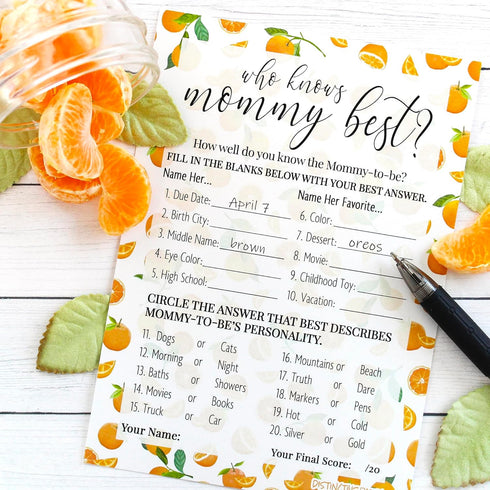 who knows
mommy best?
How well do you know the Mommy-to-be?
FILL IN THE BLANKS BELOW WITH YOUR BEST ANSWER.
Name Her...
1. Due Date: April 7
2. Birth City:
3. Middle Name: brown
4. Eye Color:
5. High School:
Name Her Favorite...
6. Color:
7. Dessert: oreos
8. Movie:
9. Childhood Toy:
10. Vacation:
CIRCLE THE ANSWER THAT BEST DESCRIBES
MOMMY-TO-BE'S PERSONALITY.
11. Dogs or Cats
12. Morning or Night
13. Baths or Showers
14. Movies or Books
15. Truck or Car
16. Mountains or Beach
17. Truth or Dare
18. Markers or Pens
19. Hot or Cold
20. Silver or Gold
Your Name:
Your Final Score: /20